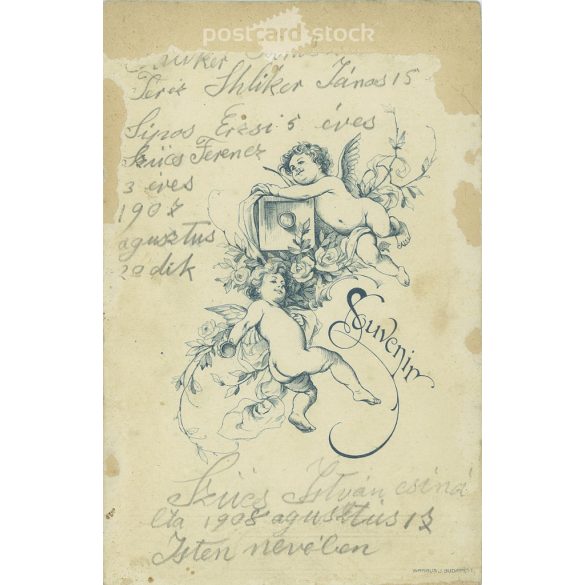 postcard stock
Teréz Shliker János 15
Sipos Erzsi 5 éves
Szücs Ferencz
3 éves
1907
agusztus
20dik
Souvenir
Szücs István csiná
lta 1908 agusztus 13
Isten nevében